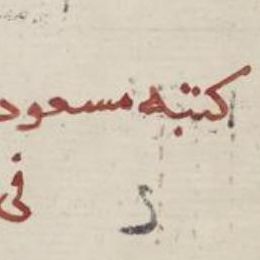 كتبه مسعود
فى